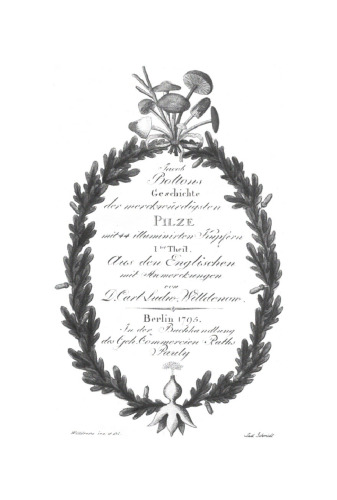 Jacob
Boltons
Geschichte
der merckwürdigsten
PILZE
mit 44 illuminirten Kupfern
I.ter Theil.
Aus den Englischen
mit Anmerckungen
von
D. Carl Ludw. Willdenow.
Berlin 1795.
In der Buchhandlung
des Geh. Commercien Raths
Pauly